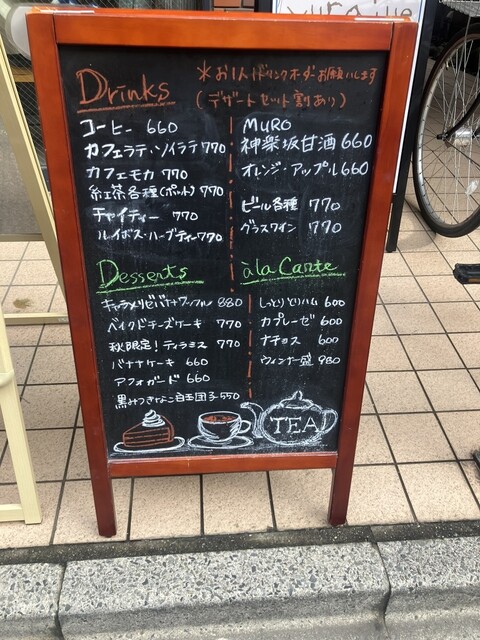 Drinks
＊お1人1ドリンクオーダーお願いします
(デザートセット割あり)
コーヒー 660
カフェラテ・ソイラテ 770
カフェモカ 770
紅茶各種(ポット) 770
チャイティー 770
ルイボス・ハーブティー 770
MURO
神楽坂甘酒 660
オレンジ・アップル 660
ビール各種 770
グラスワイン 770
Desserts
キャラメリゼバナナワッフル 880
ベイクドチーズケーキ 770
秋限定！ティラミス 770
バナナケーキ 660
アフォガード 660
黒みつきなこ白玉団子 550
à la Carte
しっとりとりハム 600
カプレーゼ 600
ナチョス 600
ウィンナー盛 980
TEA